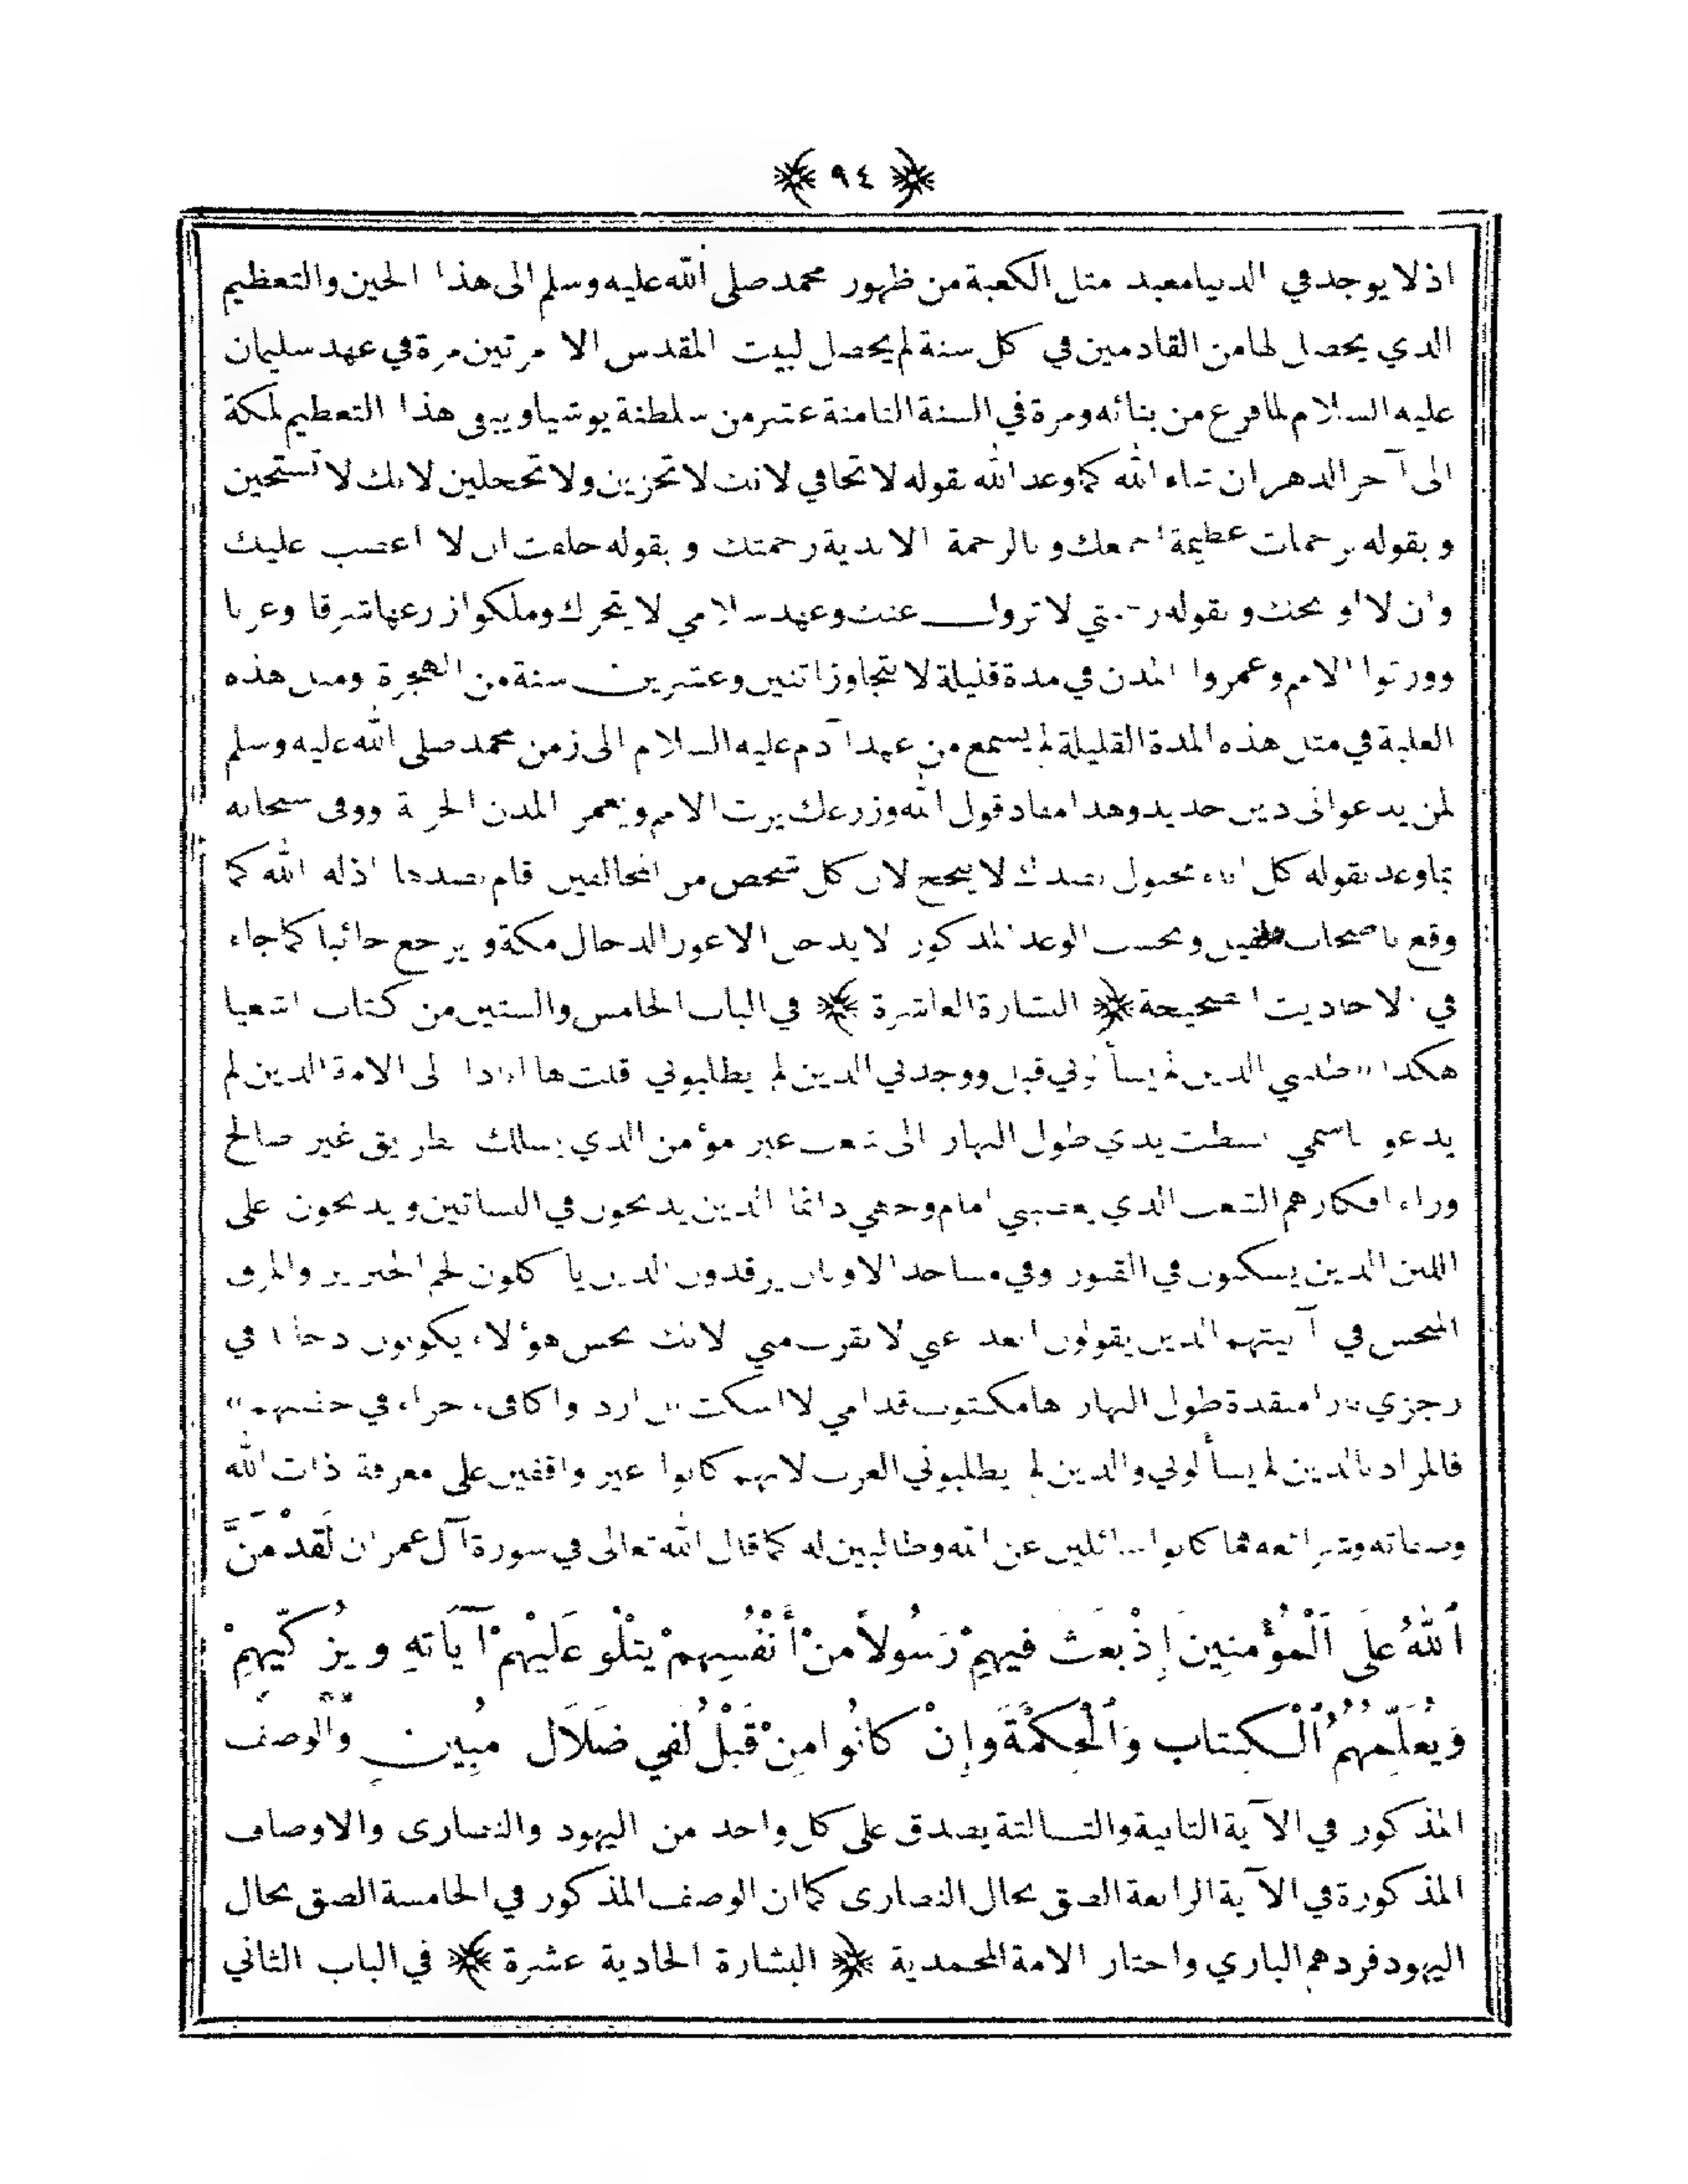 ﴿ ٩٤ ﴾
اذ لا يوجد في الدنيا معبد مثل الكعبة من ظهور محمد صلى الله عليه وسلم الى هذا الحين والتعظيم
الذي يحصل لها من القادمين في كل سنة لم يحصل لبيت المقدس الا مرتين مرة في عهد سليمان
عليه السلام لما فرغ من بنائه ومرة في السنة الثامنة عشر من سلطنة يوشيا ويبقى هذا التعظيم لمكة
الى آخر الدهر ان شاء الله كما وعد الله بقوله لا تخافي لانك لا تخزين ولا تخجلين لانك لا تستحين
وبقوله برحمات عظيمة اجمعك وبالرحمة الابدية رحمتك وبقوله حلفت ان لا اغضب عليك
وان لا اوبخك وبقوله رحمتي لا تزول عنك وعهد سلامي لا يتحرك وملكوا زرعها شرقا وغربا
وورثوا الامم وعمروا المدن في مدة قليلة لا تتجاوز اثنين وعشرين سنة من الهجرة ومثل هذه
الغلبة في مثل هذه المدة القليلة لم يسمع من عهد آدم عليه السلام الى زمن محمد صلى الله عليه وسلم
لمن يدعو الى دين جديد وهذا مفاد قول الله وزرعك يرث الامم ويعمر المدن الخربة ووفى سبحانه
بما وعد بقوله كل اناء مجبول بضدك لا ينجح لان كل شخص من المخالفين قام بضدها اذله الله كما
وقع باصحاب الفيل وبحسب الوعد المذكور لا يدخل الاعور الدجال مكة ويرجع خائبا كما جاء
في الاحاديث الصحيحة ﴿ البشارة العاشرة ﴾ في الباب الخامس والستين من كتاب اشعيا
هكذا ,, طلبني الذين لم يسألوني قبل ووجدني الذين لم يطلبوني قلت ها انذا الى الامة الذين لم
يدعو باسمي بسطت يدي طول النهار الى شعب غير مؤمن الذي يسلك طريق غير صالح
وراء افكارهم الشعب الذي يغضبني امام وجهي دائما الذين يذبحون في البساتين ويذبحون على
اللبن الذين يسكنون في القبور وفي مساجد الاوثان يرقدون الذين يأكلون لحم الخنزير والمرق
المنجس في آنيتهم الذين يقولون ابعد عني لا تقرب مني لانك نجس هؤلاء يكونون دخانا في
رجزي نارا متقدة طول النهار ها مكتوب قدامي لا اسكت بل ارد واكافى جزاء في حضنهم ,,
فالمراد بالذين لم يسألوني والذين لم يطلبوني العرب لانهم كانوا غير واقفين على معرفة ذات الله
وصفاته وشرائعه فما كانوا سائلين عن الله وطالبين له كما قال الله تعالى في سورة آل عمران لَقَدْ مَنَّ
ٱللهُ عَلَى ٱلْمُؤْمِنِينَ إِذْ بَعَثَ فِيهِمْ رَسُولاً مِنْ أَنْفُسِهِمْ يَتْلُو عَلَيْهِمْ آيَاتِهِ وَيُزَكِّيهِمْ
وَيُعَلِّمُهُمُ ٱلْكِتَابَ وَٱلْحِكْمَةَ وَإِنْ كَانُوا مِنْ قَبْلُ لَفِي ضَلَالٍ مُبِينٍ والوصف
المذكور في الآية الثانية والثـالثة يصدق على كل واحد من اليهود والنصارى والاوصاف
المذكورة في الآية الرابعة الصق بحال النصارى كما ان الوصف المذكور في الخامسة الصق بحال
اليهود فردهم الباري واختار الامة المحمدية ﴿ البشارة الحادية عشرة ﴾ في الباب الثاني